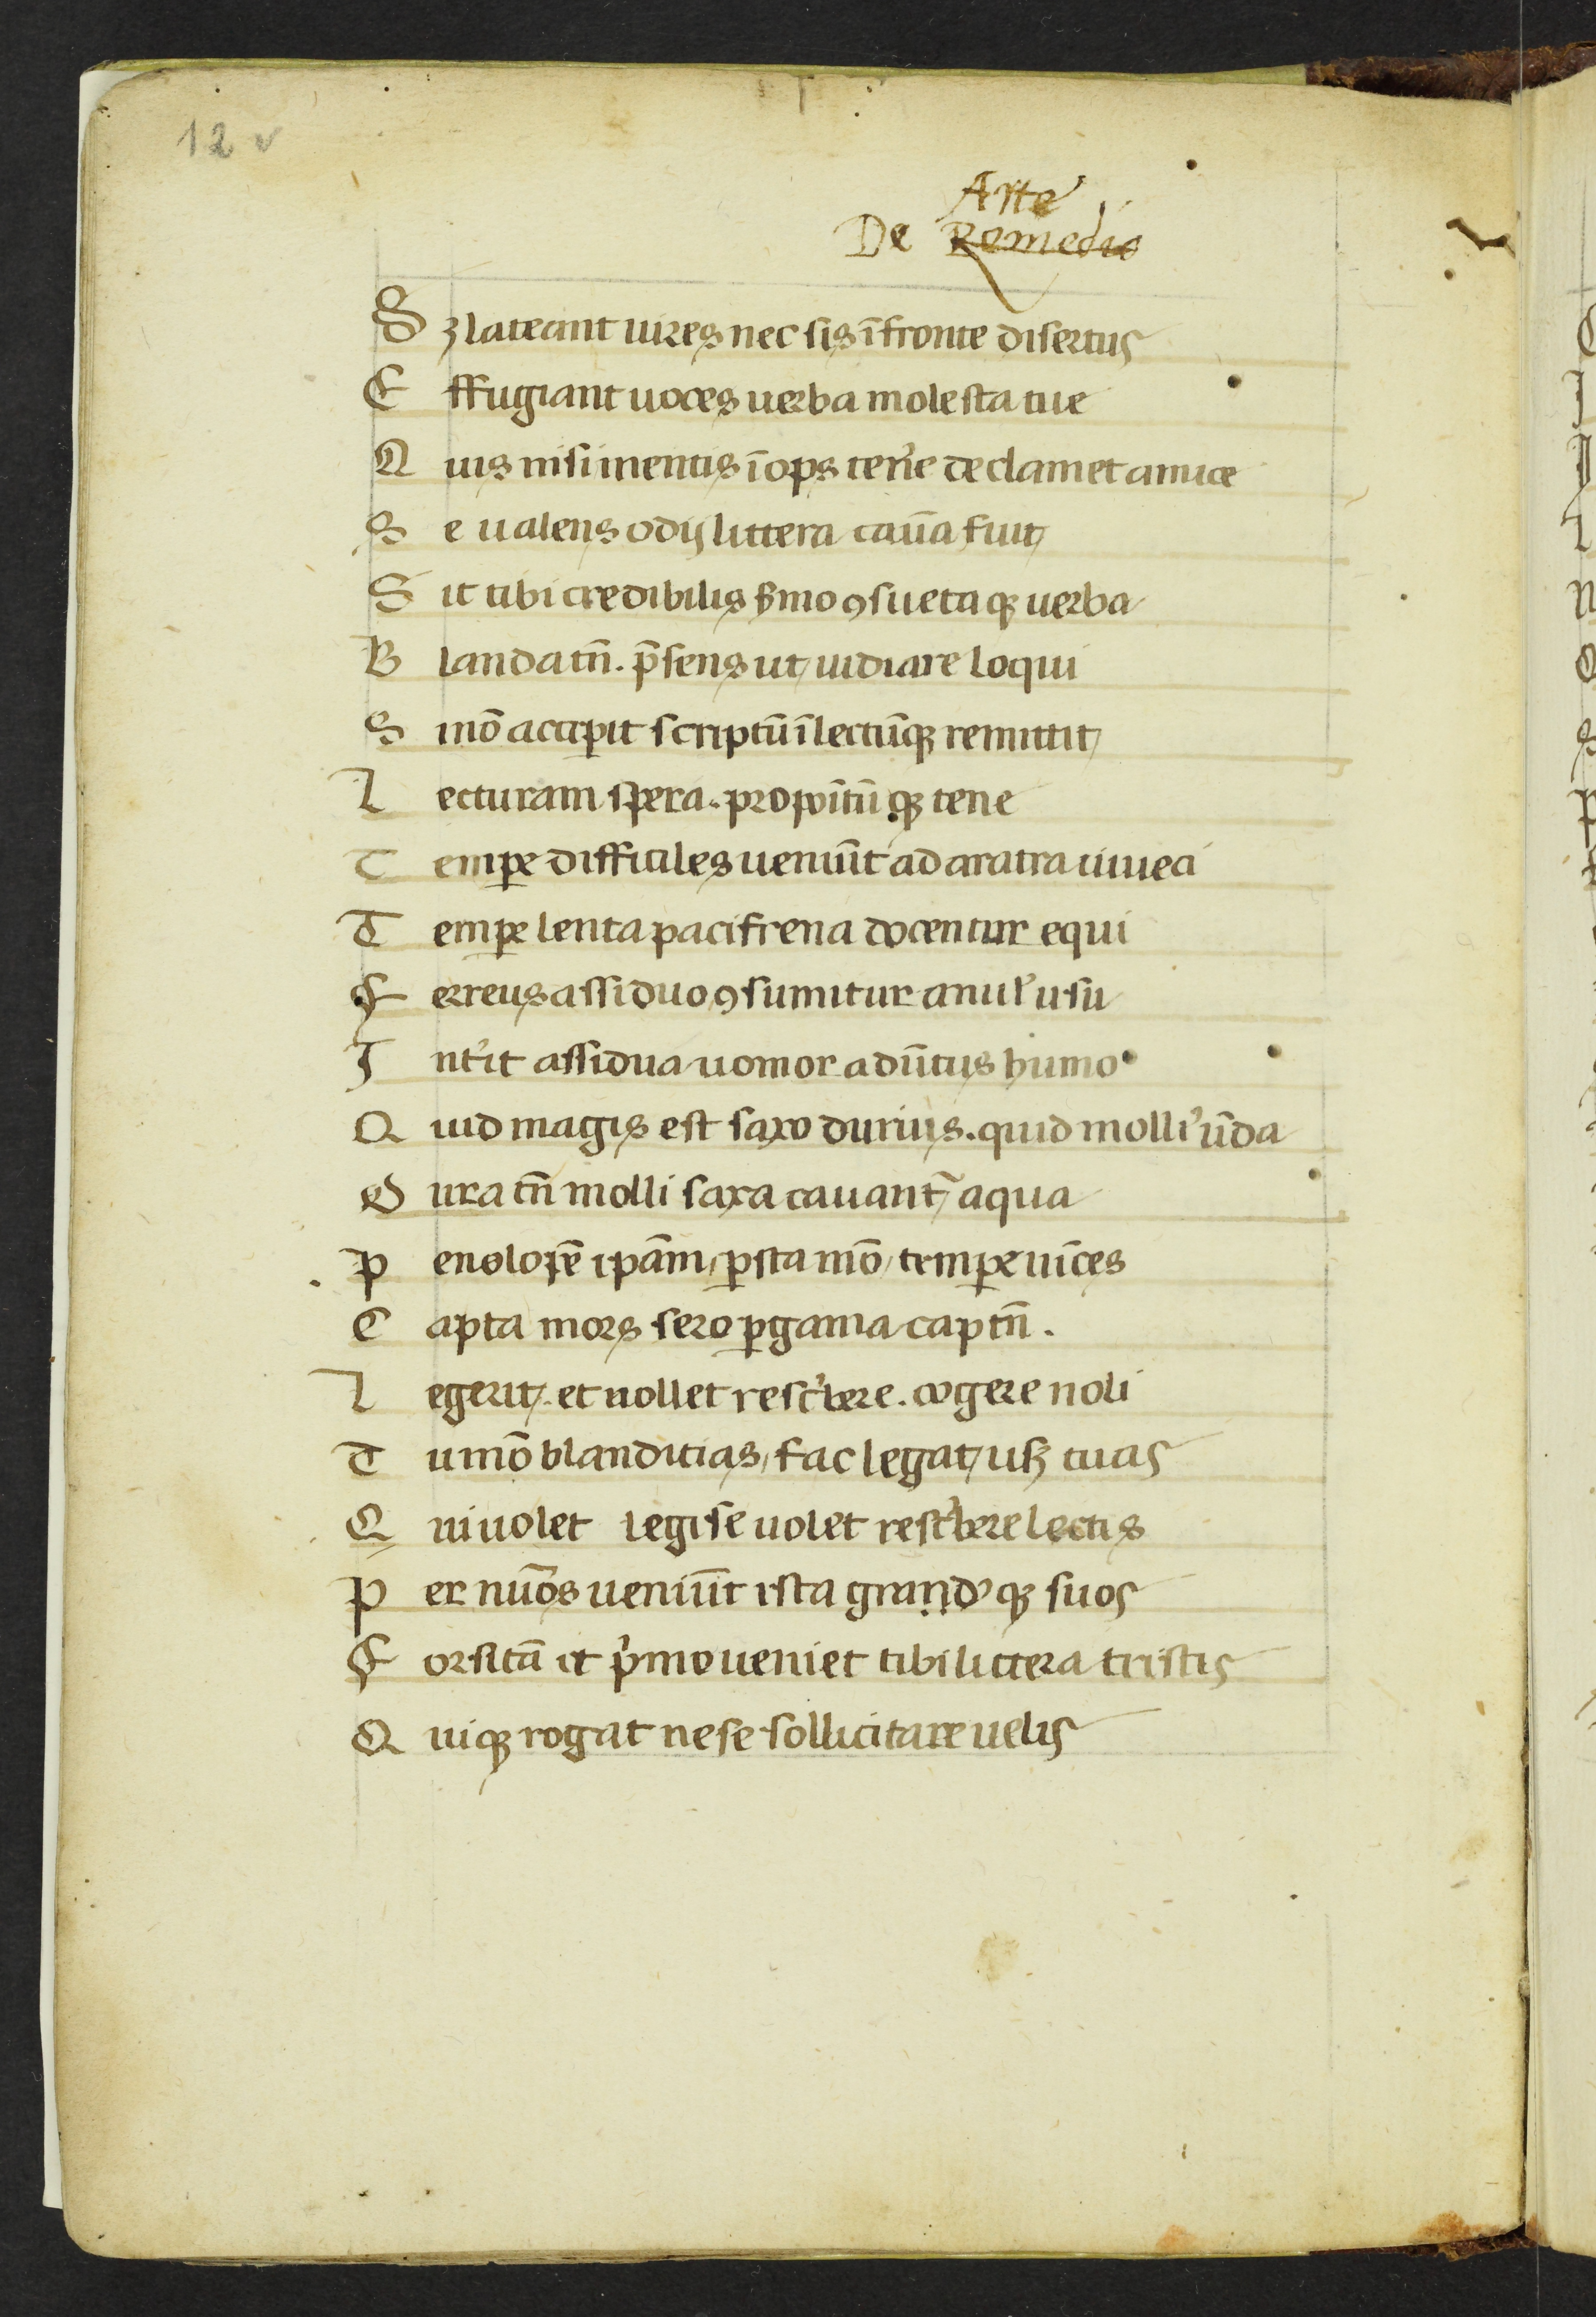 12 v
Arte
De Remedio
Sꝫ lateant uires nec sis ī fronte disertus
Effugiant uoces uerba molesta tue
Quis nisi mentis īops ten̾e declamet amice
Se ualens odij littera cau̅a fuit
Sit tibi credibilis s̾mo ꝯsuetaqꝫ uerba
Blanda tn̄. p̄sens ut uidiare loqui
Si nō accipit scriptū īlectūqꝫ remittit
Lecturam spera. propoītūqꝫ tene
Tempe difficiles ueniūt ad aratra iuueci
Tempe lenta paci frena docentur equi
Ferreus assiduo ꝯsumitur anul᾽ usu
Int̾it assidua uomor adūtus humo
Quid magis est saxo durius. quid molli᾽ ūda
Dura tn̄ molli saxa cauant᷑ aqua
Penolopē ipām, ꝑsta mō, tempe uīces
Capta mors sero ꝑgama capta tn̄.
Legerit. et nollet resc̾bere. cogere noli
Tu mō blanditias, fac legat usꝫ tuas
Qui uolet legise uolet resc̾bere lectis
Per nūos ueniūt ista grand᾽qꝫ suos
Forsitā et p̾mo ueniet tibi littera tristis
Quiqꝫ rogat ne se sollicitare uelis